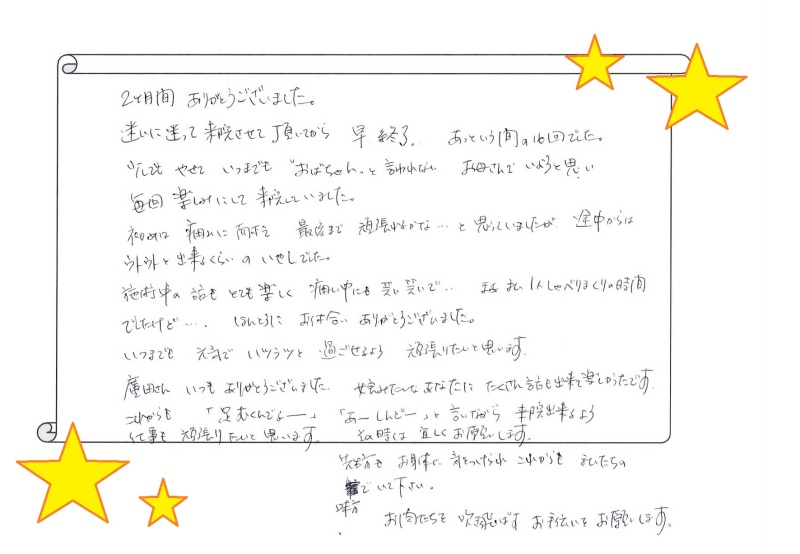 2ヶ月間 ありがとうございました。
迷いに迷って来院させて頂いてから 早 終了. あっという間の16回でした。
少しでも やせて いつまでも "おばちゃん"と言われない お母さんで いようと思い
毎回 楽しみにして来院していました。
初めは 痛みに 最後まで 頑張れるかな…と思っていましたが 途中からは
ウトウトと出来るくらいのいやしでした。
施術中の 話も とても楽しく 痛い中にも 笑い笑いで‥ まあ 私1人しゃべりまくりの時間
でしたけど…. ほんとうに お付合い ありがとうございました。
いつまでも 元気で ハツラツと 過ごせるよう 頑張りたいと思います.
廣田さん いつも ありがとうございました. 娘みたいなあなたに たくさん話も出来て楽しかったです.
これからも 「足むくんでるよー」 「あーしんどー」と言いながら 来院出来るよう
仕事も 頑張りたいと思います. その時は 宜しくお願いします.
先生方も お身体に 気をつけられ これからも 私たちの
味方
でいて下さい.
お肉たちを 吹き飛ばす お手伝いを お願いします.